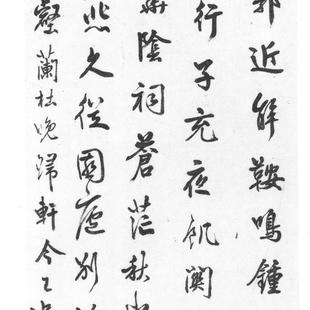 近解鞍鳴鍾
行子充夜飢
陰祠蒼茫秋
久從園廬別
壑蘭杜晚歸軒今